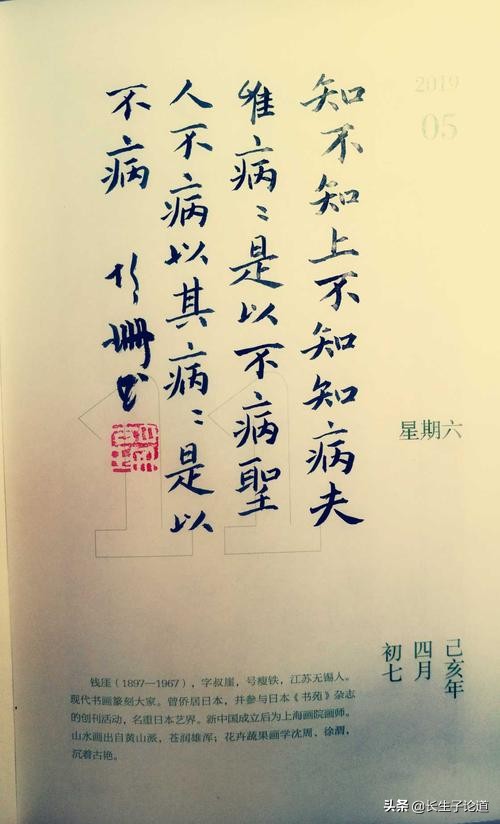 2019
05
11
星期六
己亥年
四月
初七
知不知上不知知病夫
唯病〻是以不病聖
人不病以其病〻是以
不病
珊书
钱崖（1897—1967），字叔崖，号瘦铁，江苏无锡人。
现代书画篆刻大家。曾侨居日本，并参与日本《书苑》杂志
的创刊活动，名重日本艺界。新中国成立后为上海画院画师。
山水画出自黄山派，苍润雄浑；花卉蔬果画学沈周、徐渭，
沉着古艳。
头条 @长生子论道